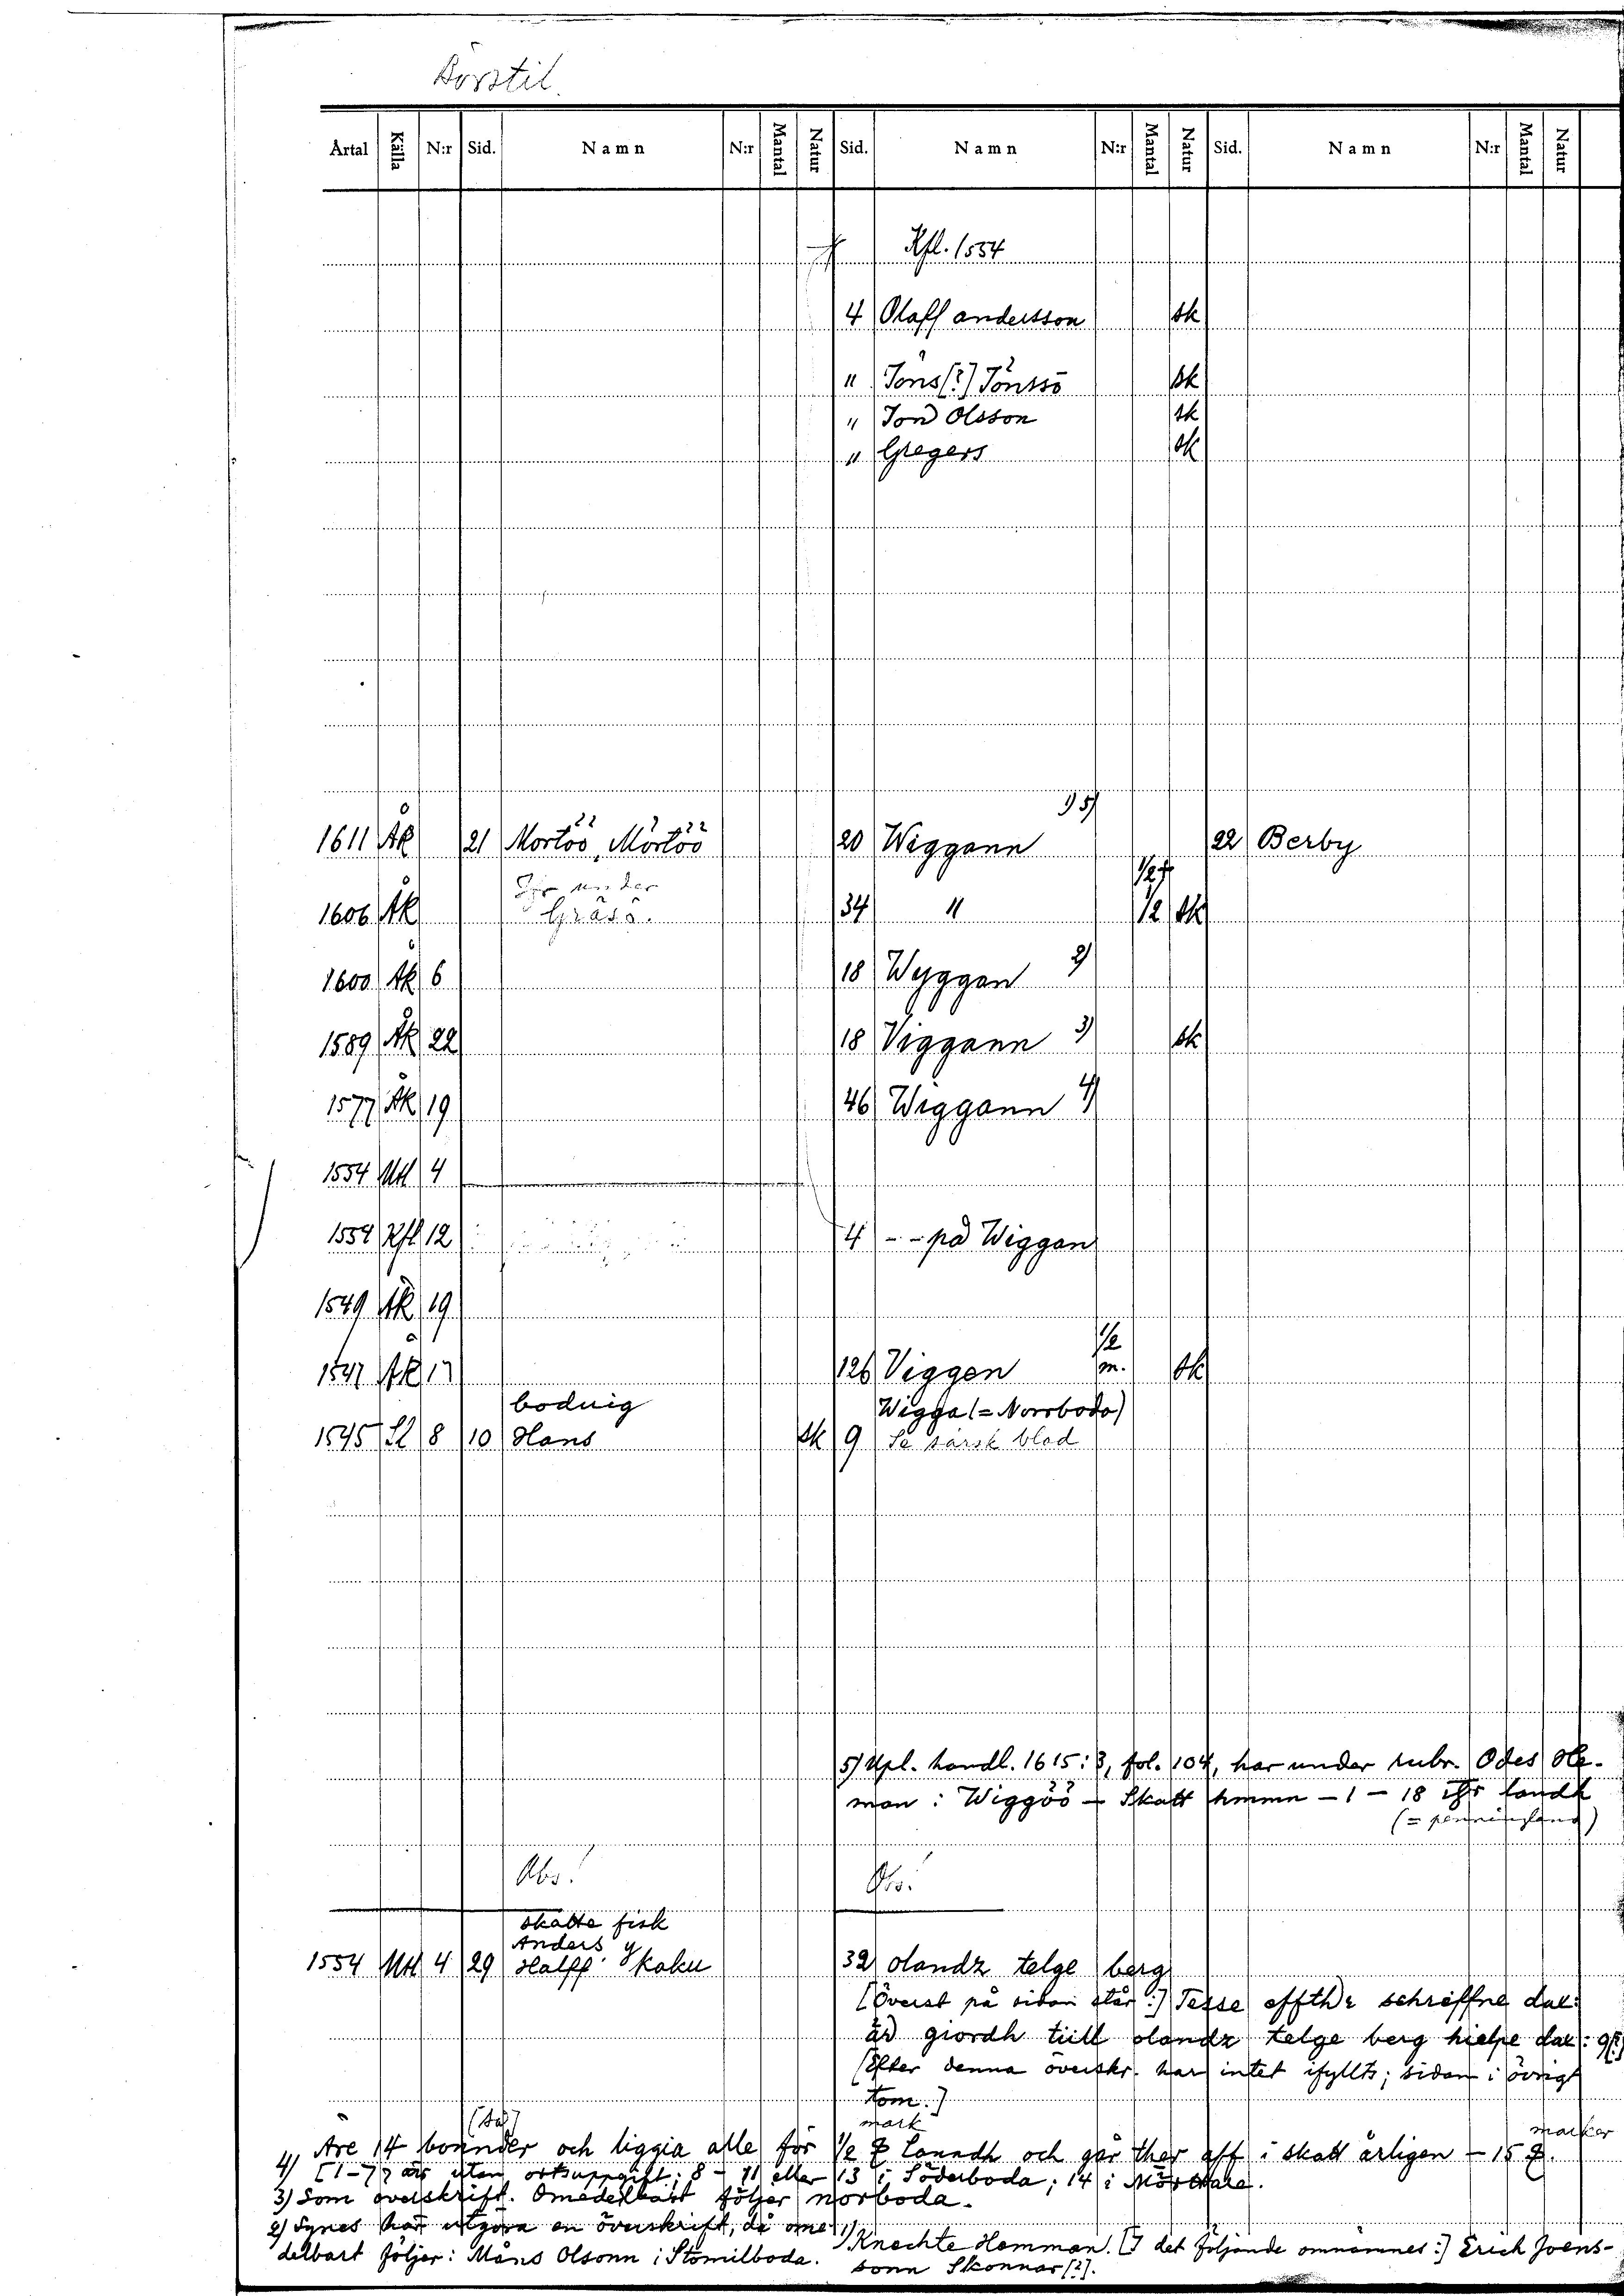 Börstil.
Årtal Källa N:r Sid. Namn N:r Mantal Natur Sid. Namn N:r Mantal Natur Sid. Namn N:r Mantal Natur
Kfl. 1554
4 Olaff andersson sk
" Jöns [?] Jönssō sk
" Jon Olsson sk
" Gregers sk
1) 5)
1611 ÅK 21 Mortöö, Mörtöö 20 Wiggann 22 Berby
Se under 1/2 f
1606 ÅK Gräsö. 34 " 1/2 sk
1600 ÅK 6 18 Wyggen 2)
1589 ÅK 22 18 Viggann 3) sk
1577 ÅK 19 46 Wiggann 4)
1554 UH 4
1554 Kfl 12 4 - - på Wiggan
1549 ÅK 19
1/2
1547 ÅK 17 126 Viggen m. sk
bodvig Wigga (= Norrboda)
1545 Sl 8 10 Hans sk 9 Se särsk blad
5) Upl. handl. 1615: 3, fol. 104, har under rubr. Odes He-
man: Wiggöö - Skatt hmmn - 1 - 18 landh
(= penningland)
Obs! Obs!
skatte fisk
Anders y
1554 UH 4 29 Halff Skaku 32 olandz telge berg
[Överst på sidan står:] Tesse effthr schreffne dal:
är giordh tiill olandz telge berg hielpe dal: 9[?]
[Efter denna överskr. har intet ifyllts; sidan i övrigt
tom.]
mark marker
4) Äre 14 bonnder och liggia alle för 1/2 lanndh och går ther aff i skatt årligen - 15
[1-7? är utan ortsuppgift; 8 - 11 eller 13 i Söderboda; 14 i Mörtthare.
3) Som överskrift. Omedelbart följer norboda.
2) Synes har utgöra en överskrift, då ome-
delbart följer: Måns Olsonn i Stomilboda.
1) Knechte Hemman. [I det följande omnämnes:] Erich Joens-
sonn Skonnar [?].